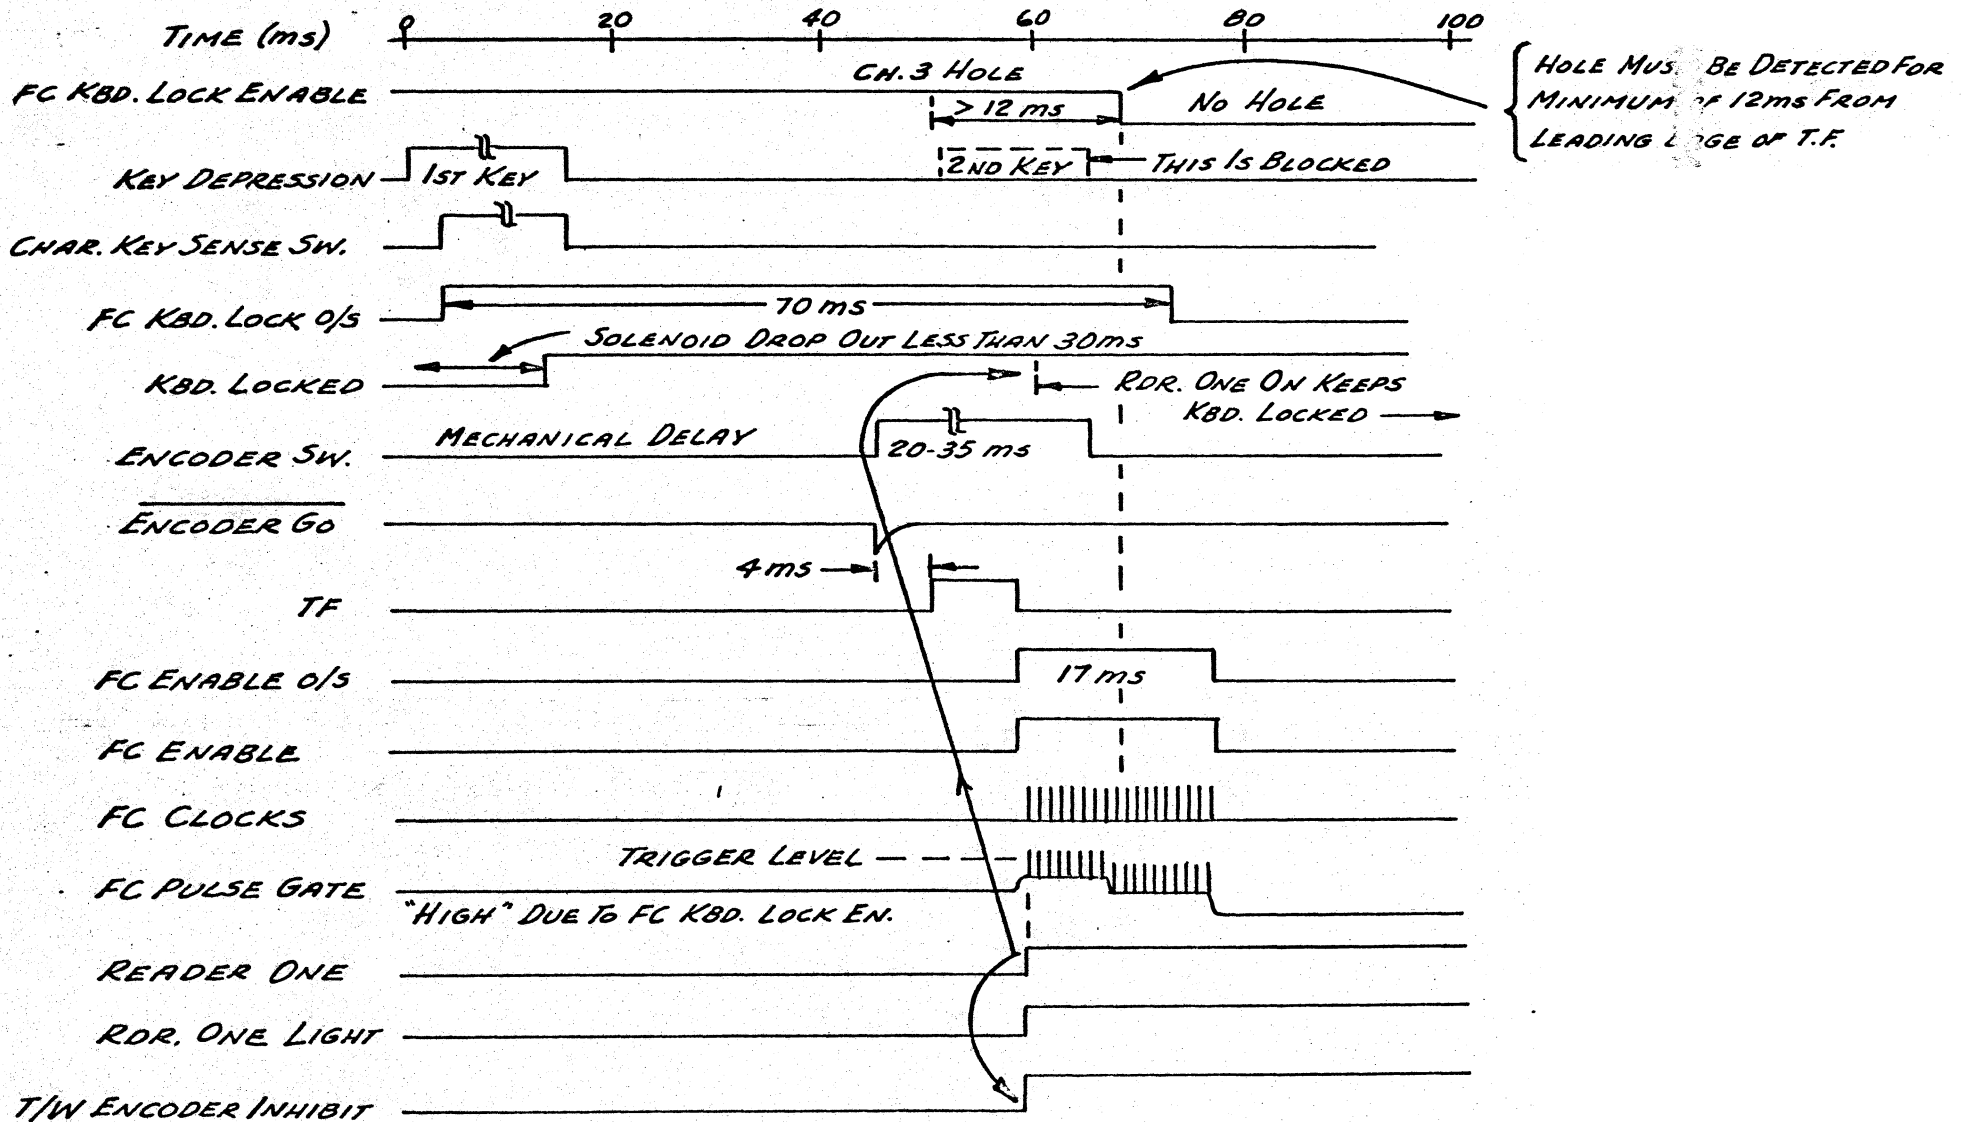 TIME (ms) 0 20 40 60 80 100
FC KBD. LOCK ENABLE
CH. 3 HOLE
> 12 ms
NO HOLE
HOLE BE DETECTED FOR
MINIMUM 12ms FROM
LEADING OF T.F.
KEY DEPRESSION
1ST KEY
2ND KEY
THIS IS BLOCKED
CHAR. KEY SENSE SW.
FC KBD. LOCK O/S
70 ms
SOLENOID DROP OUT LESS THAN 30ms
KBD. LOCKED
RDR. ONE ON KEEPS
KBD. LOCKED
ENCODER SW.
MECHANICAL DELAY
20-35 ms
ENCODER GO
4 ms
TF
FC ENABLE O/S
17 ms
FC ENABLE
FC CLOCKS
TRIGGER LEVEL
FC PULSE GATE
"HIGH" DUE TO FC KBD. LOCK EN.
READER ONE
RDR. ONE LIGHT
T/W ENCODER INHIBIT